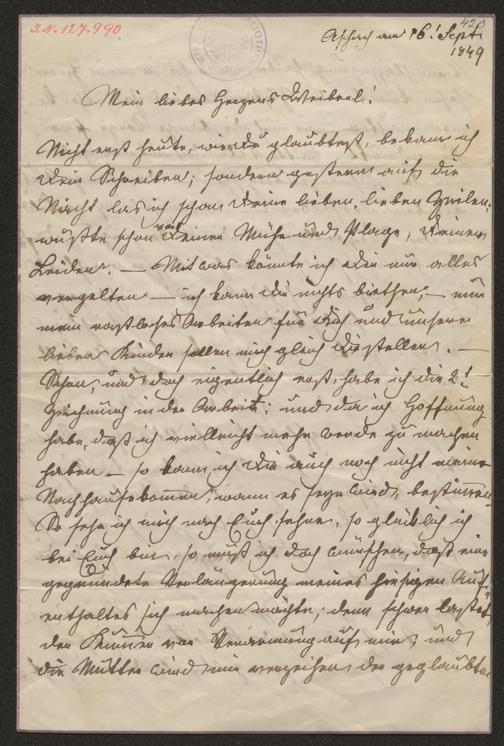 J.N. 127.990
420
Aschach am 16! Sept.
1849
Mein liebes Herzens Weiberl!
Nicht erst heute, wie du glaubtest, bekam ich
Dein Schreiben; sondern gestern auf die
Nacht las ich schon Deine lieben, lieben Zeilen;
wußte schon von Deiner Mühe und Plage, Deinen
Leiden. — Mit was könnte ich Dir nur alles
vergelten — ich kann Dir nichts biethen, — nur
mein rastloses Arbeiten für Dich und unsere
lieben Kinder sollen mich gleich Dir stellen. —
Schon, und doch eigentlich erst, habe ich die 2!
Zeichnung in der Arbeit; und da ich Hoffnung
habe, daß ich vielleicht mehr werde zu machen
haben — so kann ich Dir auch noch nicht meine
Nachhausekommen, wann es seyn wird, bestimmen.
So sehr ich mich nach Euch sehne, so glücklich ich
bei Euch bin, so muß ich doch wünschen, daß eine
gegründete Verlängerung meines hiesigen Auf-
enthaltes sich machen möchte; denn schwer lastet
der Kummer vor Verarmung auf mir, und
die Mutter wird mir verzeihen der geglaubten